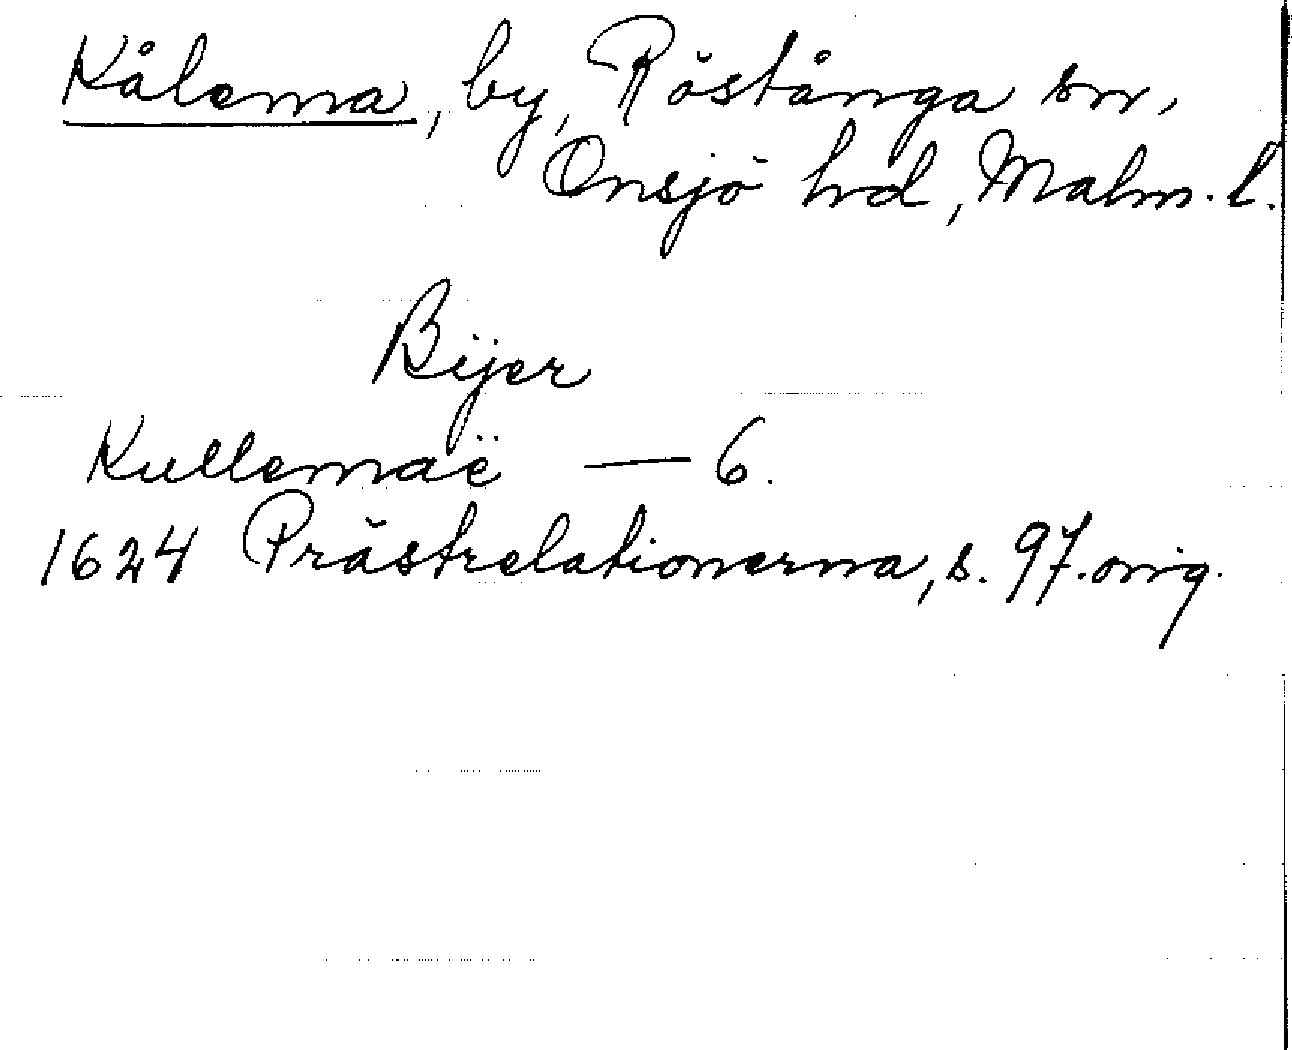 Kålema, by, Röstånga sn,
Onsjö hrd, Malm. l.
Bijer
Kullemaë — 6.
1624 Prästrelationerna, s. 97. orig.